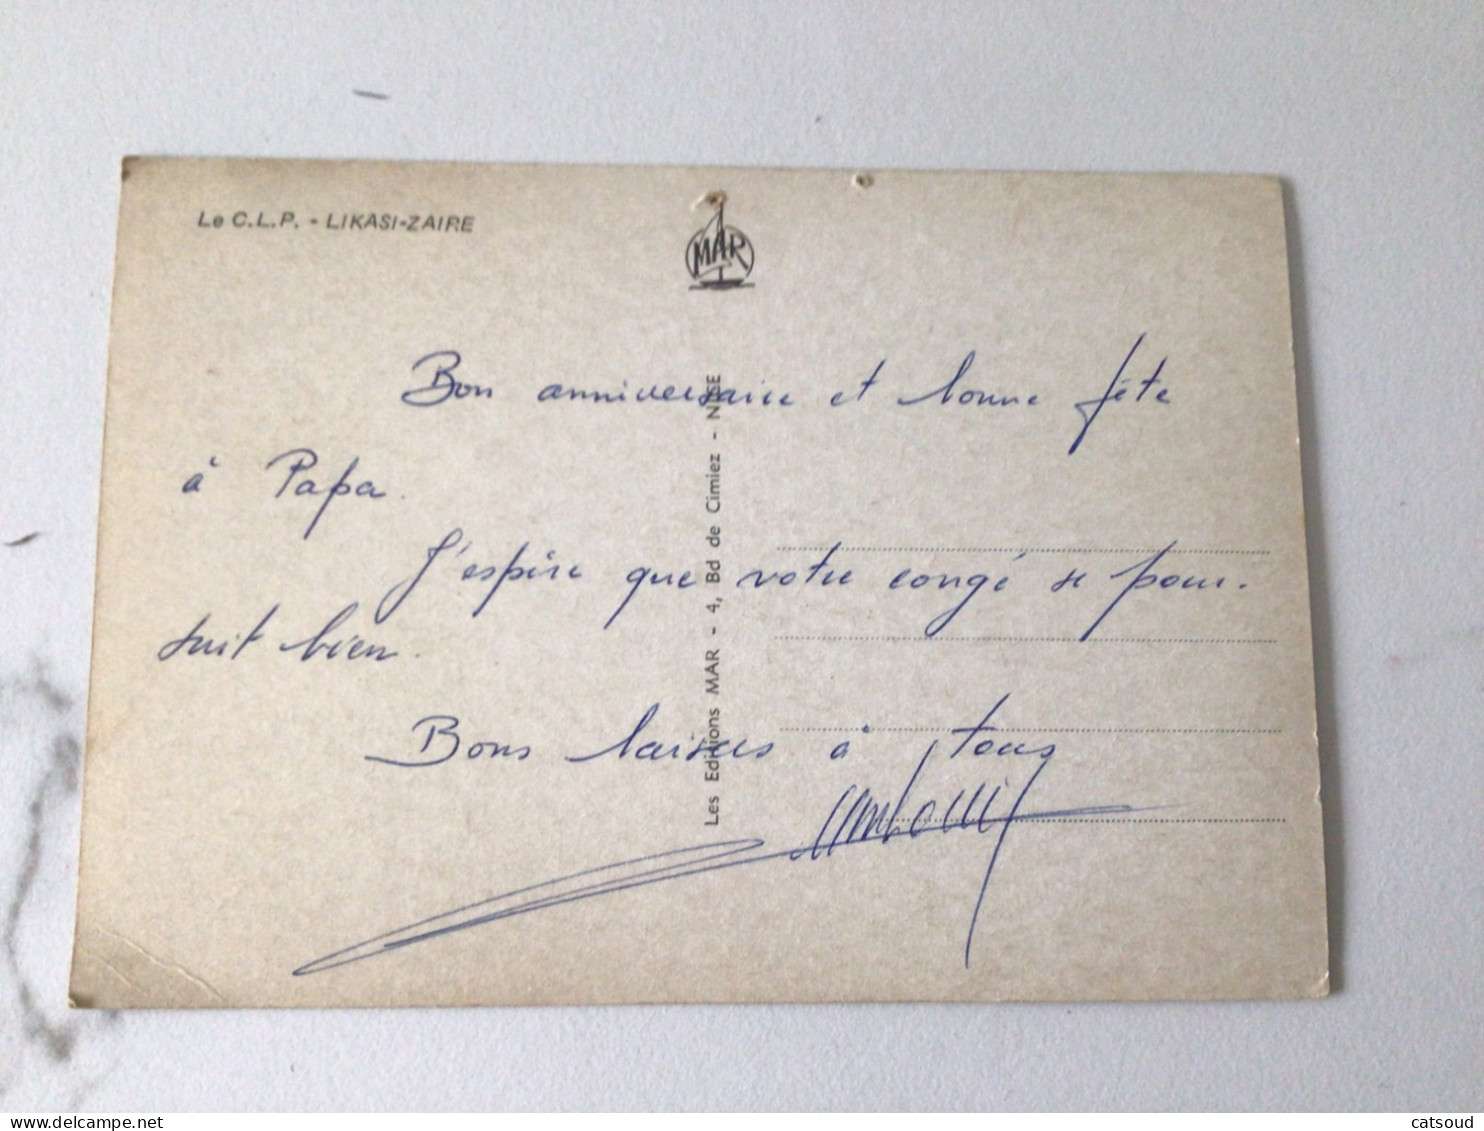 Le C.L.P. - LIKASI-ZAIRE
MAR
Bon anniversaire et bonne fête
à Papa.
J'espère que votre congé se pour-
suit bien.
Bons baisers à tous
Les Editions MAR - 4, Bd de Cimiez - NICE
catsoud